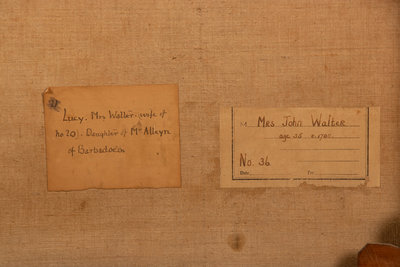 Lucy. Mrs Walter. wife of
no 20). Daughter of Mr Alleyn
of Barbadoes
M Mrs John Walter
age 35
No. 36
Date